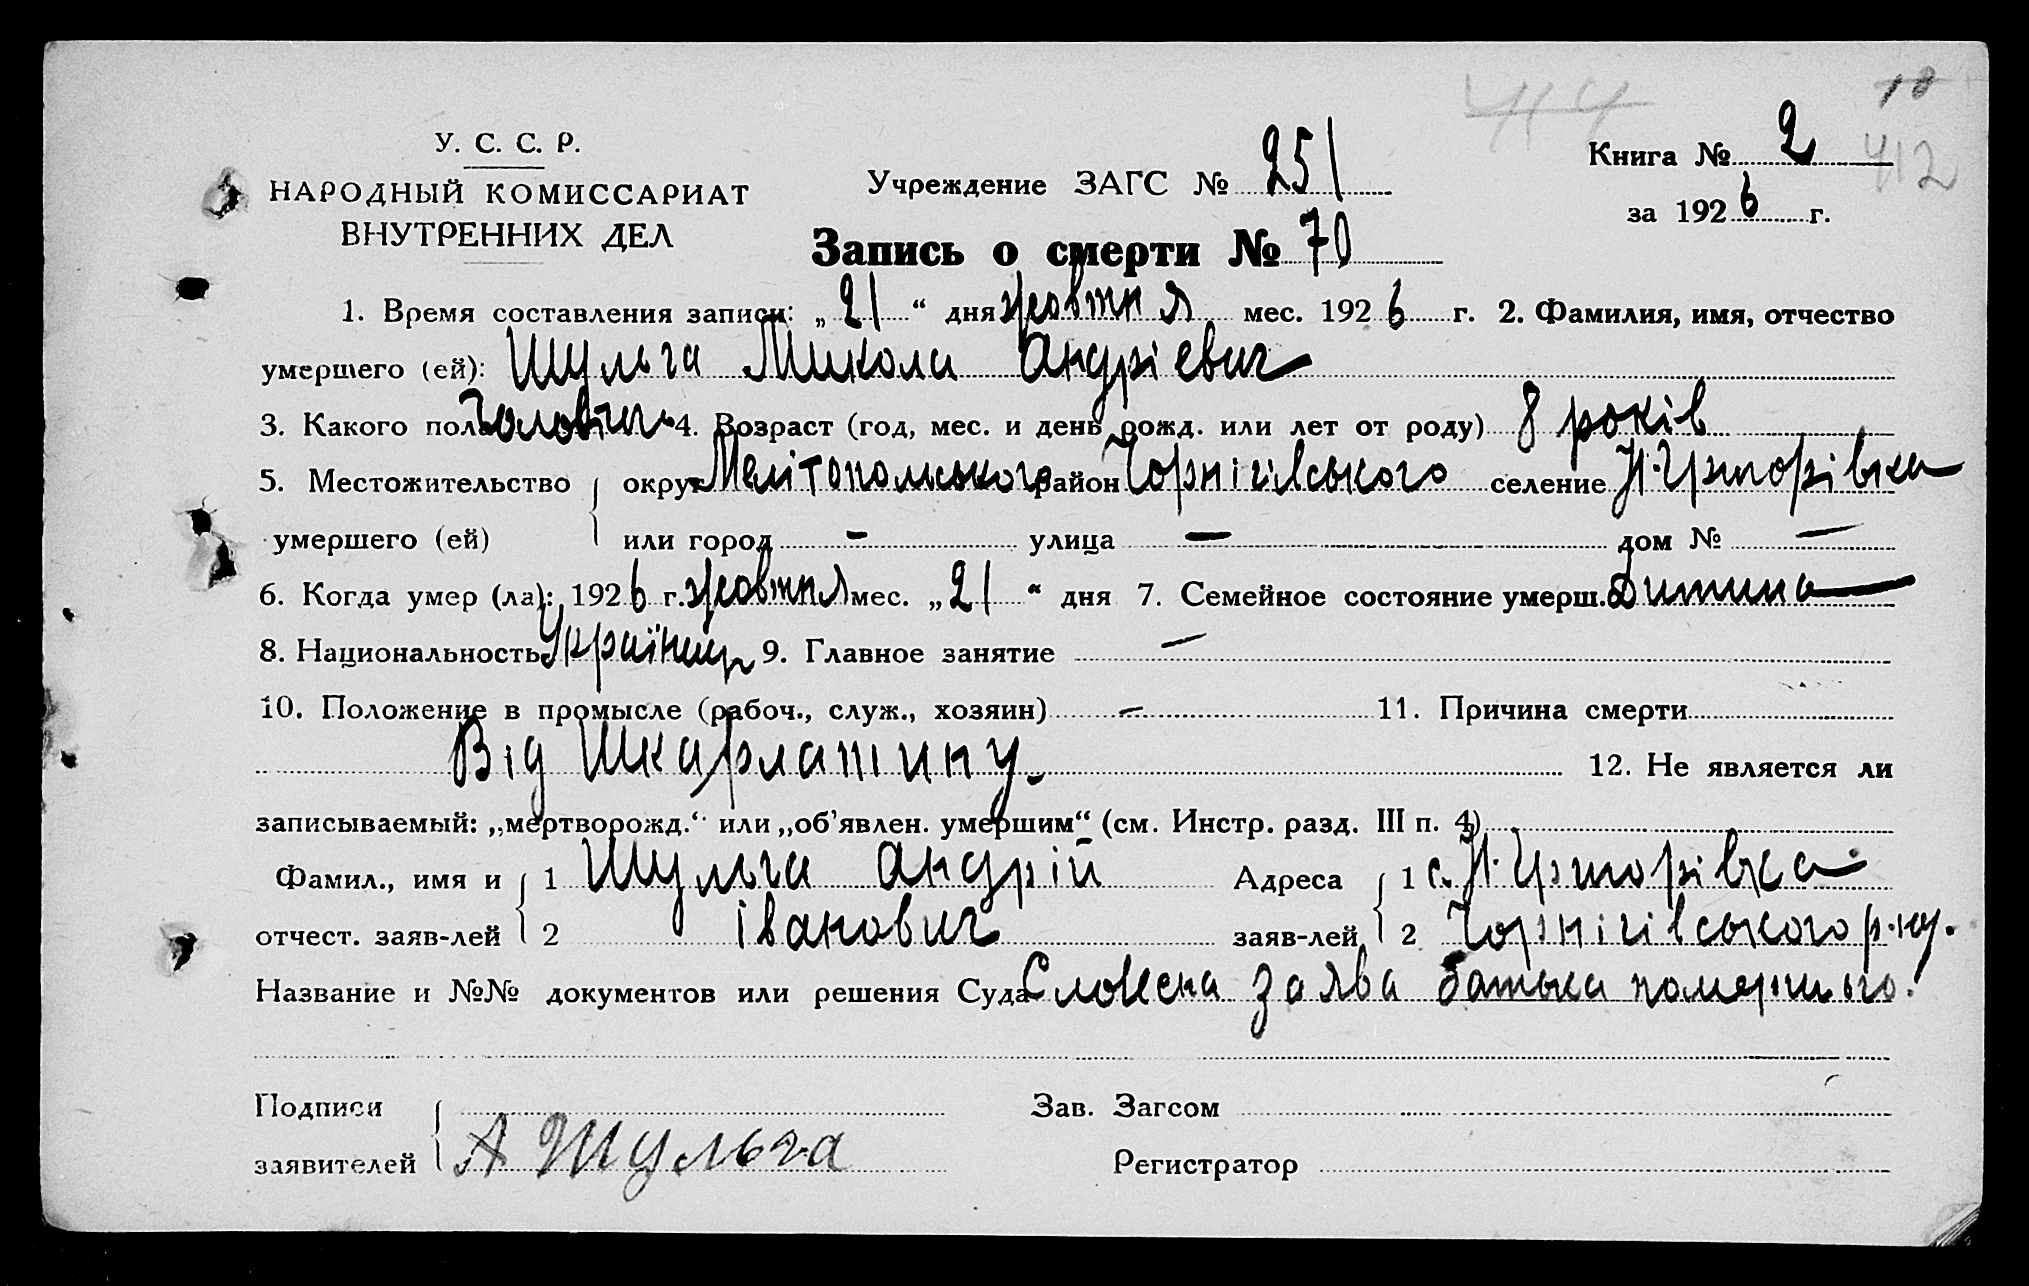 44 18
У. С. С. Р.
НАРОДНЫЙ КОМИССАРИАТ
ВНУТРЕННИХ ДЕЛ
Учреждение ЗАГС № 251
Книга № 2 412
за 1926 г.
Запись о смерти № 70
1. Время составления записи: „21“ дня жовтня мес. 1926 г. 2. Фамилия, имя, отчество
умершего (ей): Шульга Микола Андрієвич
3. Какого пола чоловіч. 4. Возраст (год, мес. и день рожд. или лет от роду) 8 років
5. Местожительство округ Мелітопольського район Чорнігівського селение Н.-Григорівка
умершего (ей) или город — улица — дом № —
6. Когда умер (ла): 1926 г. жовтня мес. „21“ дня 7. Семейное состояние умерш. Дитина
8. Национальность Українец 9. Главное занятие —
10. Положение в промысле (рабоч., служ., хозяин) — 11. Причина смерти
Від Шкарлатину. 12. Не является ли
записываемый: „мертворожд.“ или „об’явлен. умершим“ (см. Инстр. разд. III п. 4)
Фамил., имя и 1 Шульга Андрій Адреса 1 с. Н.-Григорівка
отчест. заяв-лей 2 Іванович заяв-лей 2 Чорнігівського р-ну.
Название и №№ документов или решения Суда Словесна заява батька помершого.
Подписи Зав. Загсом
заявителей А Шульга Регистратор